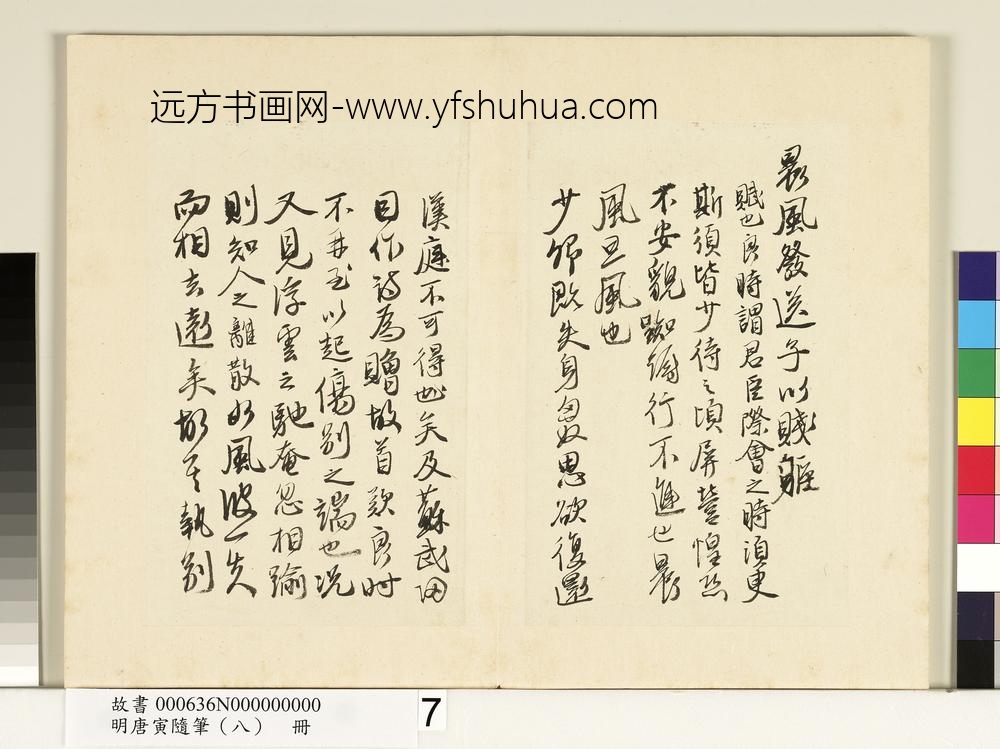 远方书画网-www.yfshuhua.com
晨風發送子以賤軀
賦也良時謂君臣際會之時須臾
斯須皆少待之頃屏營惶恐
不安貌踟躕行不進也晨
風旦風也
少卿既失身匈奴思欲復還
漢庭不可得也矣及蘇武回
因作詩為贈故首歎良时
不再至以起傷别之端也况
又見浮雲之馳奄忽相踰
則知人之離散如風波一失
而相去遠矣故其執别
故書 000636N000000000
明唐寅隨筆（八） 冊
7